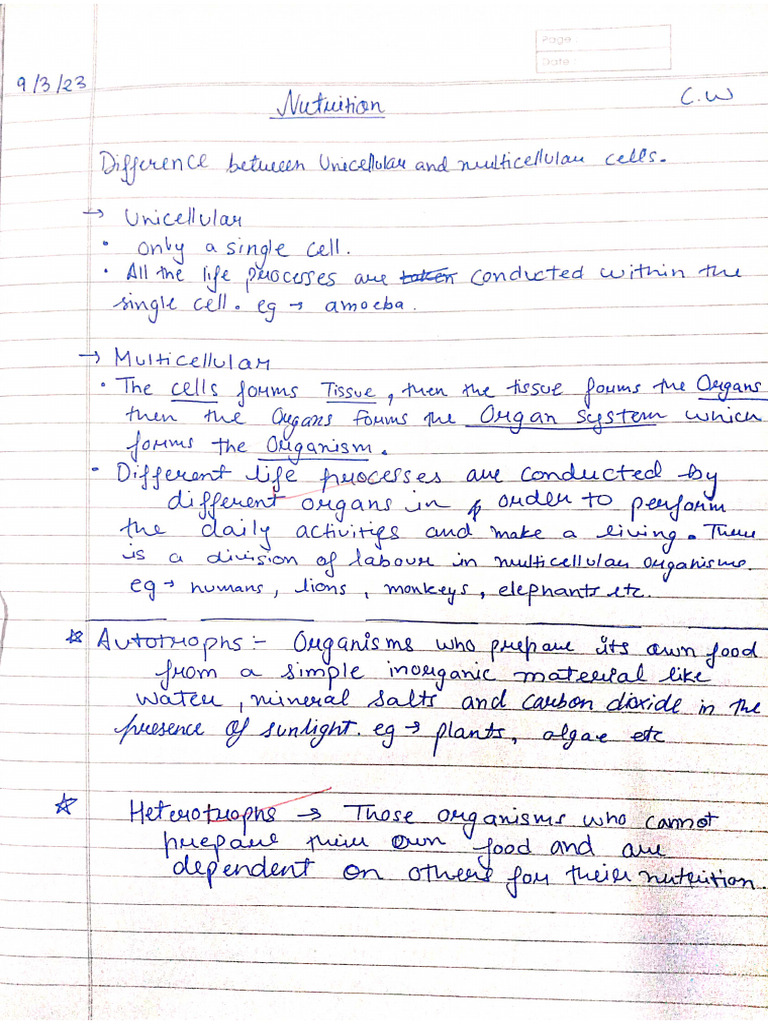 Page :
Date :
9/3/23
Nutrition
C.W
Difference between Unicellular and multicellular cells.
→ Unicellular
• only a single cell.
• All the life processes are taken conducted within the
single cell. eg → amoeba.
→ Multicellular
• The cells forms Tissue, then the tissue forms the Organs
then the Organs forms the Organ system which
forms the Organism.
• Different life processes are conducted by
different organs in order to perform
the daily activities and make a living. There
is a division of labour in multicellular organisms.
eg → humans, lions, monkeys, elephants etc.
☆ Autotrophs :- Organisms who prepare its own food
from a simple inorganic material like
water, mineral salts and carbon dioxide in the
presence of sunlight. eg → plants, algae etc
☆ Heterotrophs → Those organisms who cannot
prepare their own food and are
dependent on others for their nutrition.